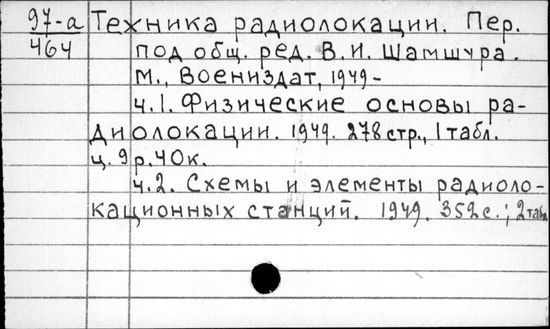 97-а Техника радиолокации. Пер.
464 под общ. ред. В.И. Шамшура.
М., Воениздат, 1949-
ч.1. Физические основы ра-
диолокации. 1949. 278 стр., 1 табл.
ц. 9р. 40к.
ч.2. Схемы и элементы радиоло-
кационных станций. 1949. 352с.; 2 табл.